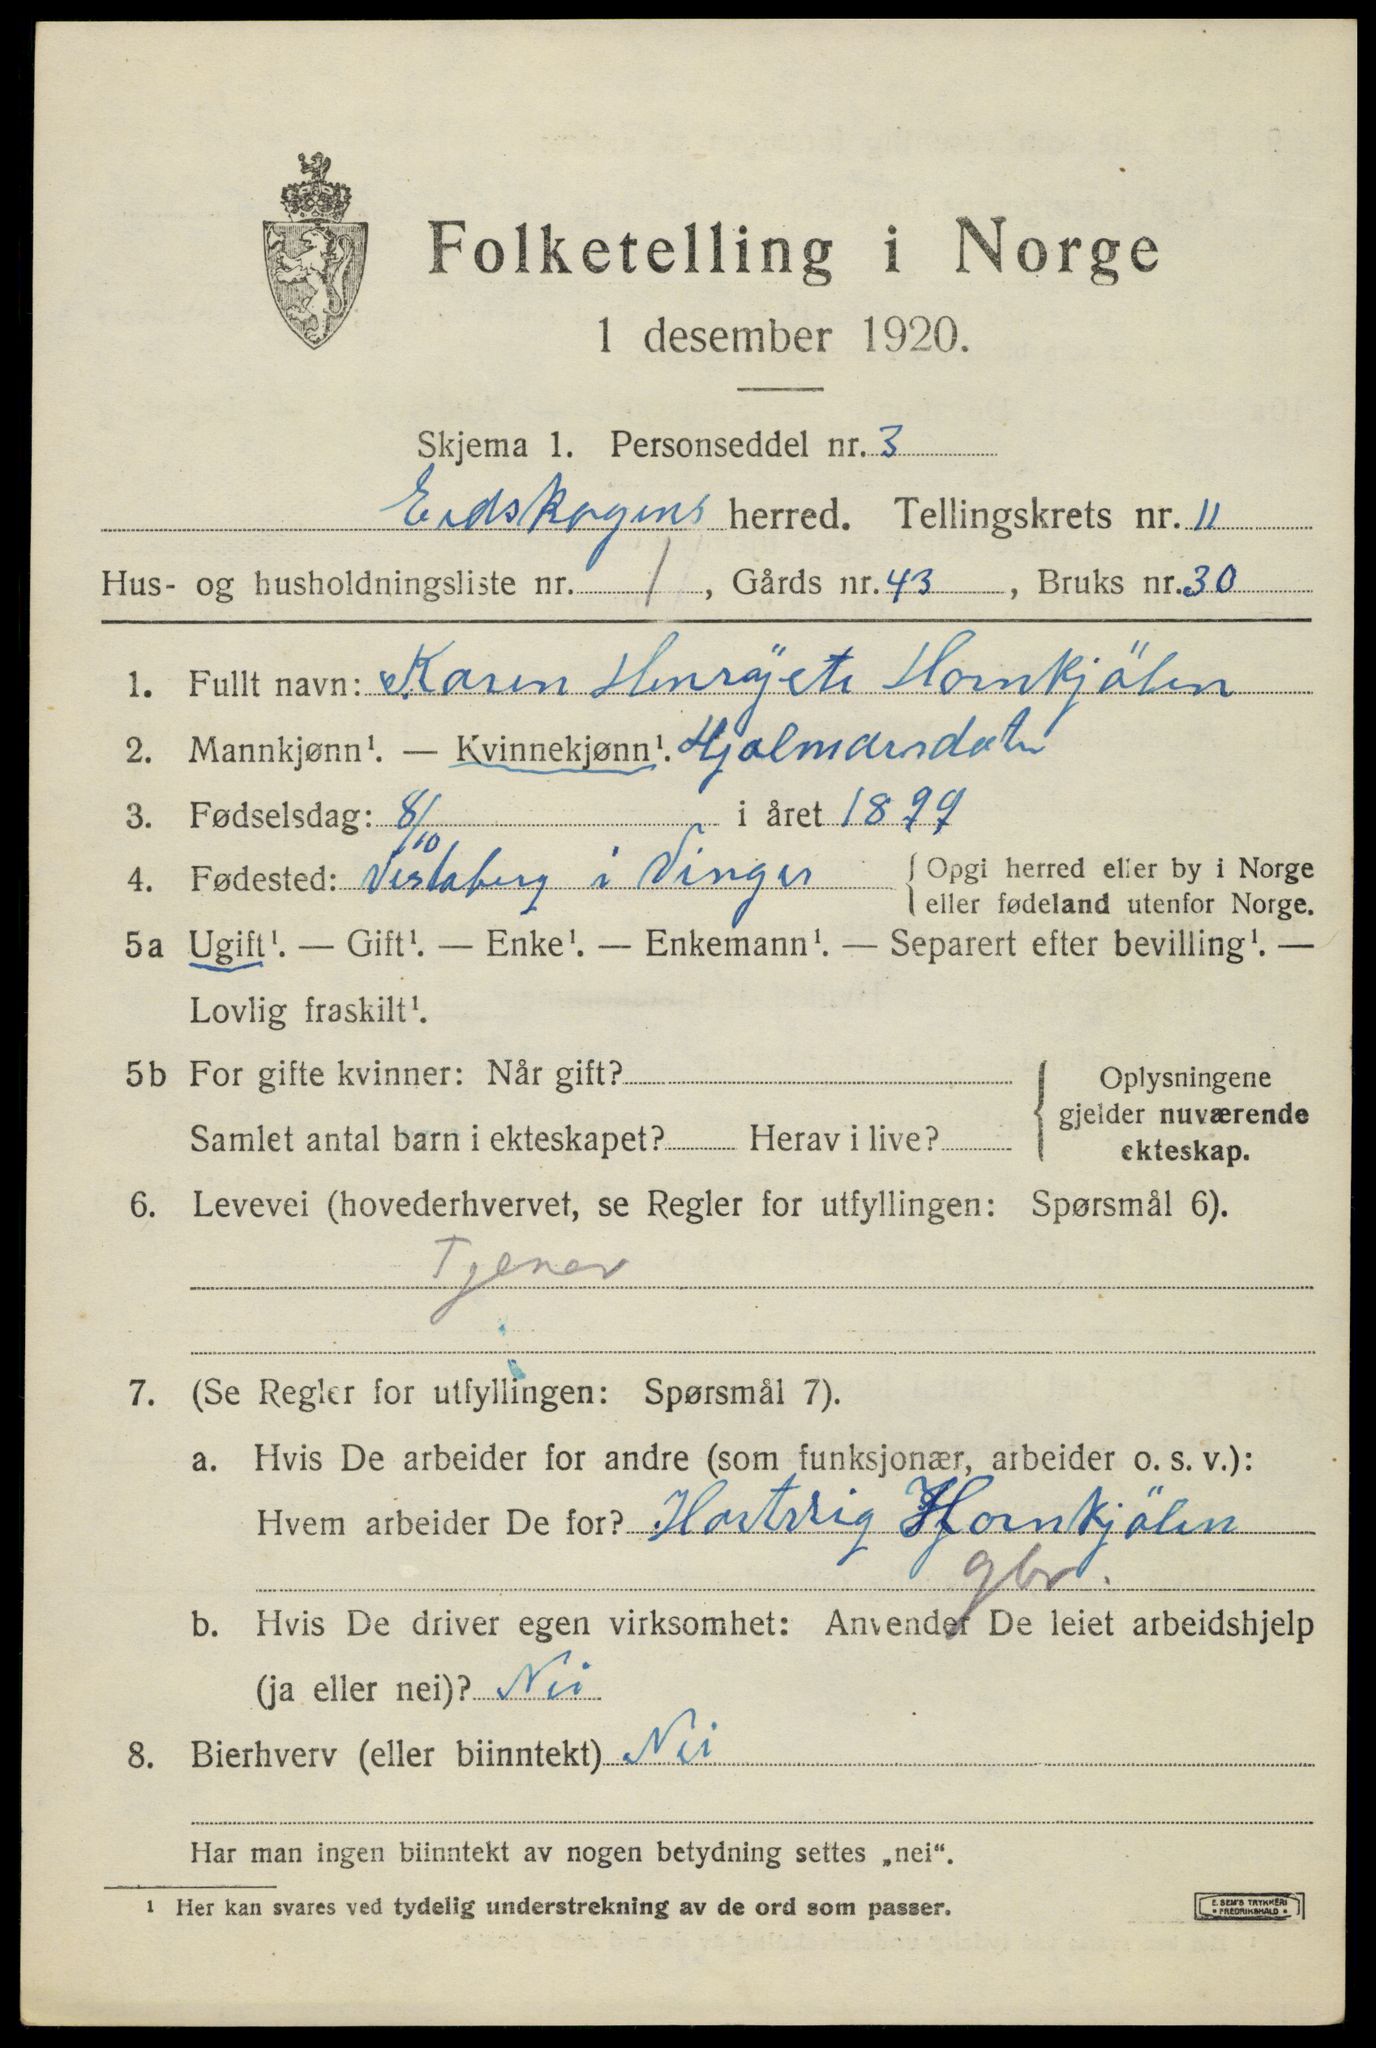 Folketelling i Norge
1 desember 1920.
Skjema 1. Personseddel nr. 3
Eidskogens herred. Tellingskrets nr. 11
Hus- og husholdningsliste nr. 1, Gårds nr. 43, Bruks nr. 30
1. Fullt navn: Karen Hornkjölen
2. Mannkjønn¹. — Kvinnekjønn¹. Hjalmarsdatr
3. Fødselsdag: 8/10 i året 1899
4. Fødested: i Vinger { Opgi herred eller by i Norge
eller fødeland utenfor Norge.
5a Ugift¹. — Gift¹. — Enke¹. — Enkemann¹. — Separert efter bevilling¹. —
Lovlig fraskilt¹.
5b For gifte kvinner: Når gift? { Oplysningene
gjelder nuværende
Samlet antal barn i ekteskapet? Herav i live? ekteskap.
6. Levevei (hovederhvervet, se Regler for utfyllingen: Spørsmål 6).
Tjener
7. (Se Regler for utfyllingen: Spørsmål 7).
a. Hvis De arbeider for andre (som funksjonær, arbeider o. s. v.):
Hvem arbeider De for? Hartvig Hornkjölen
gbr.
b. Hvis De driver egen virksomhet: Anvender De leiet arbeidshjelp
(ja eller nei)? Nei
8. Bierhverv (eller biinntekt) Nei
Har man ingen biinntekt av nogen betydning settes „nei“.
¹ Her kan svares ved tydelig understrekning av de ord som passer.
E. SEM'S TRYKKERI
• FREDRIKSHALD •